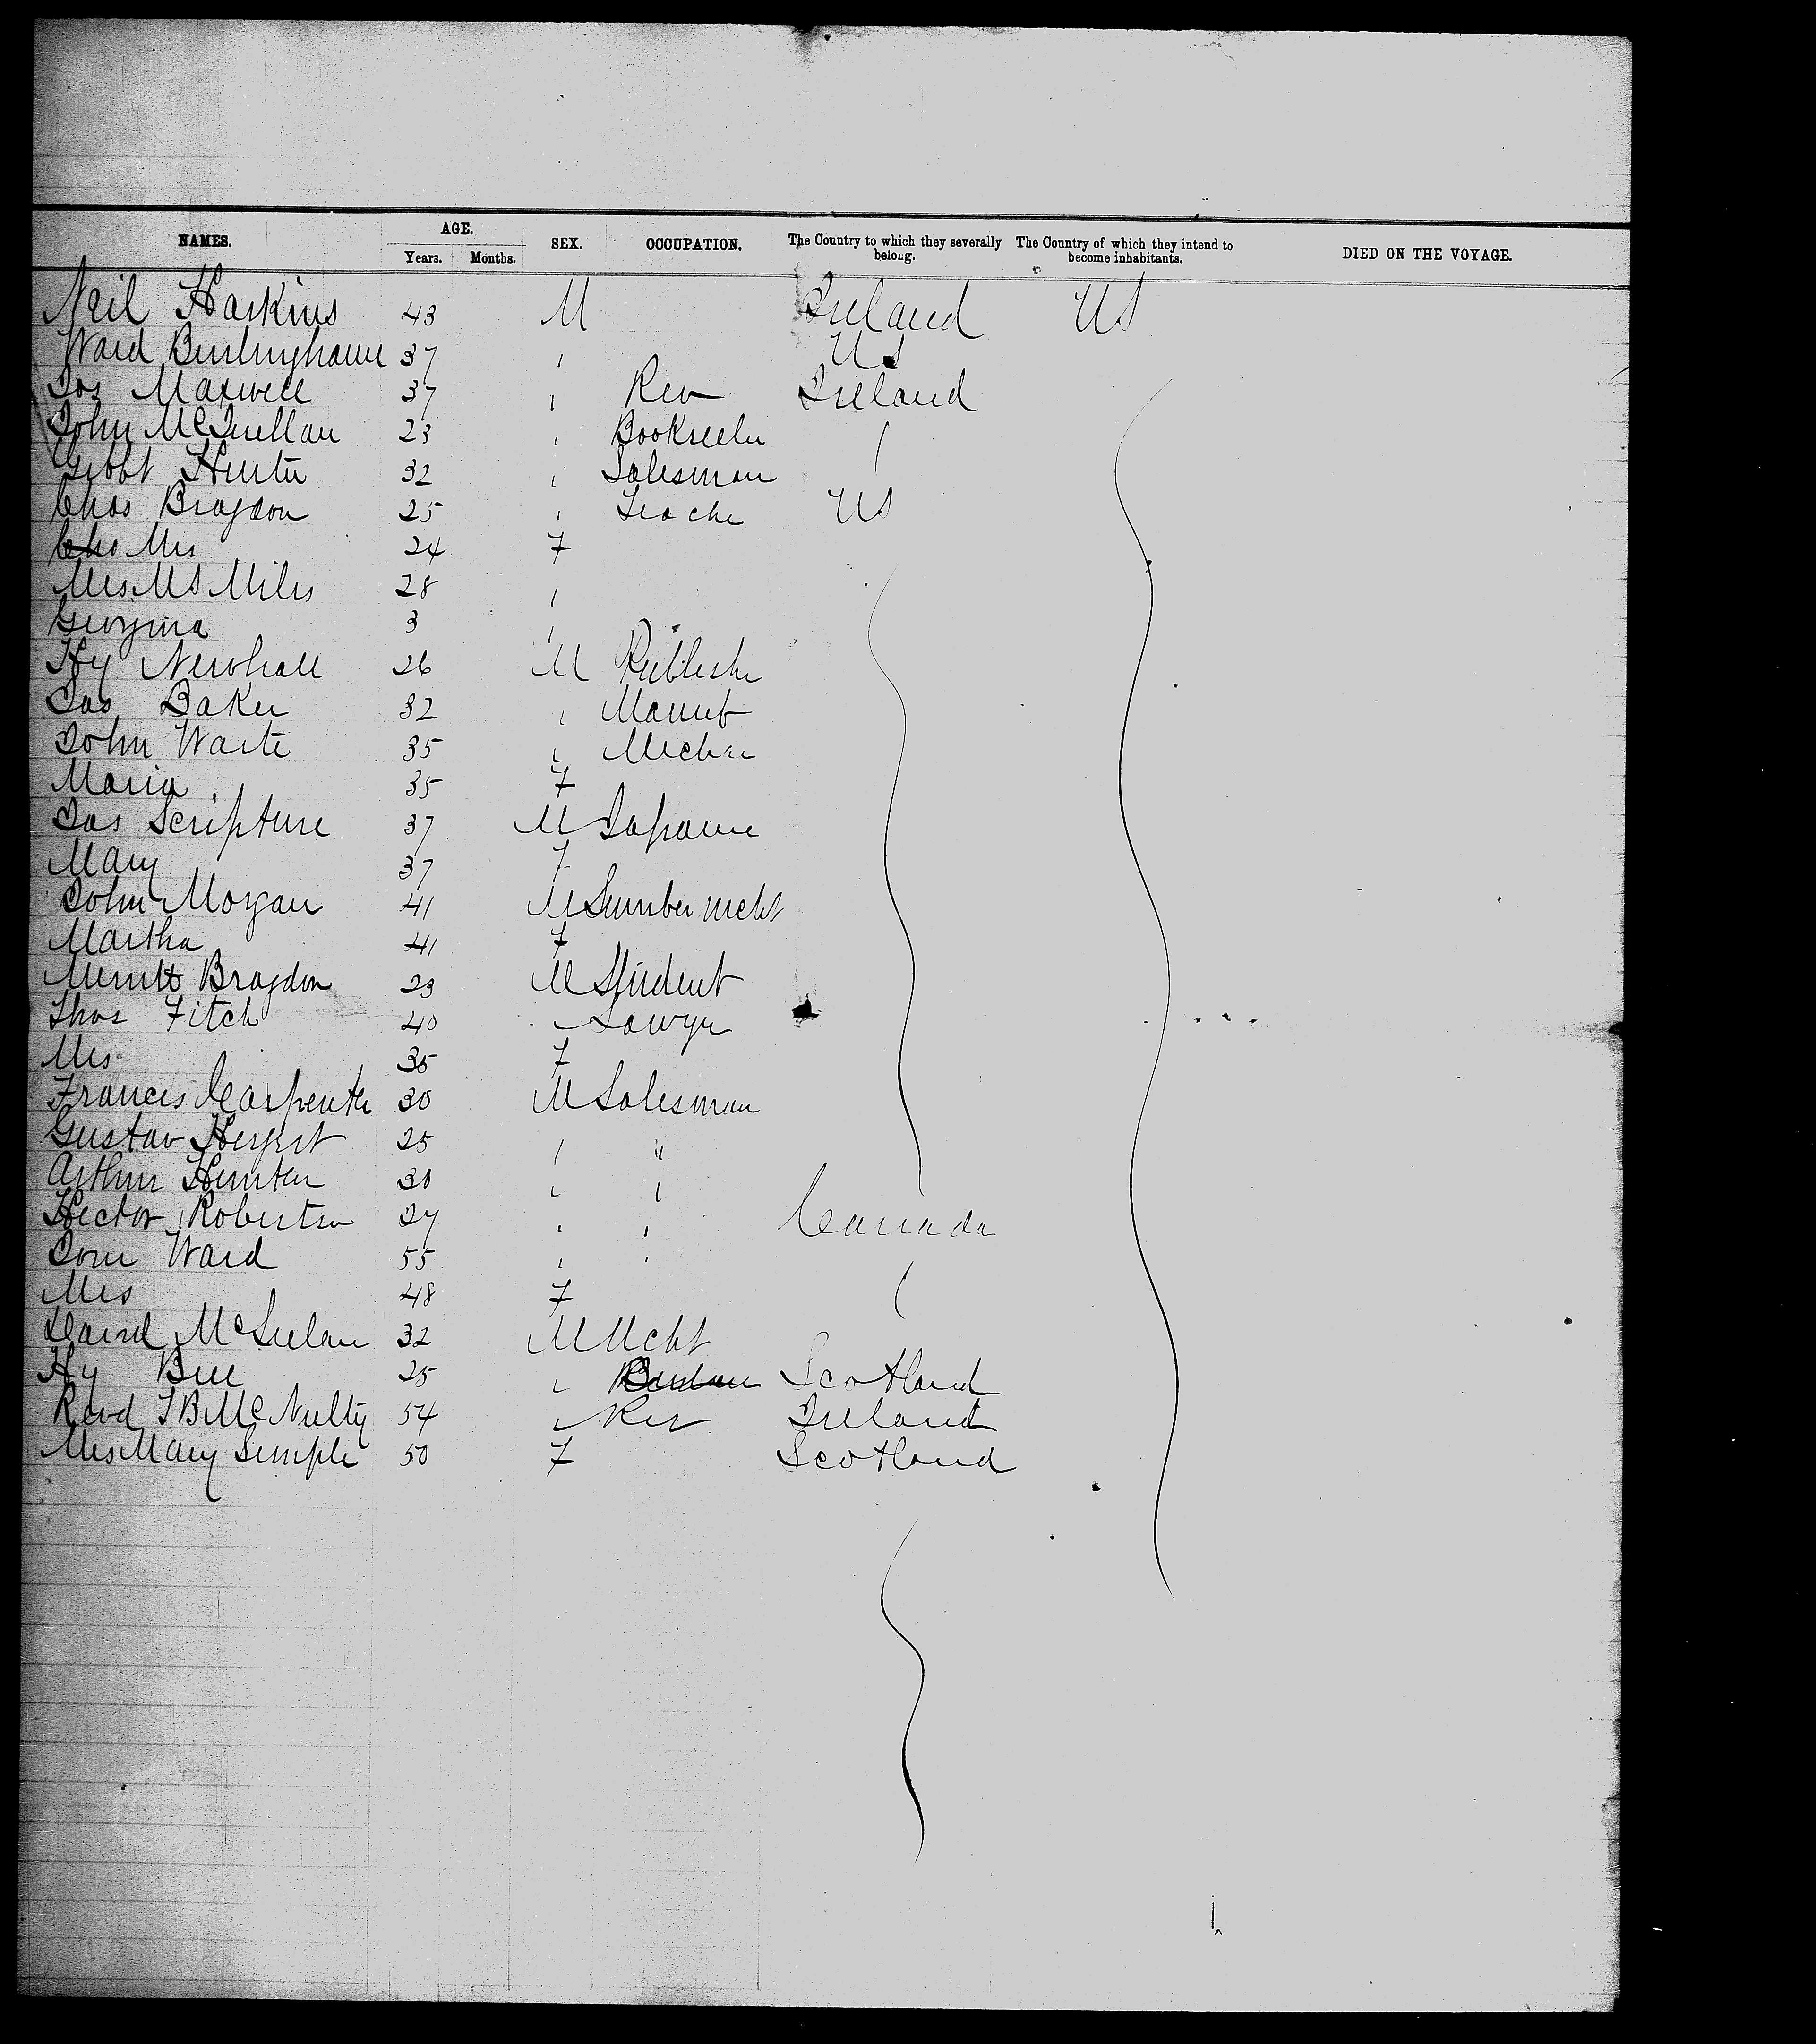 NAMES. AGE. SEX. OCCUPATION. The Country to which they severally belong. The Country of which they intend to become inhabitants. DIED ON THE VOYAGE.
Years. Months.
Neil Harkins 43 M Ireland US
Ward Burlinghame 37 " US
Jos Maxwell 37 " Rev Ireland
John McQuellan 23 " "
Hunter 32 " Salesman
Chas Bragdon 25 " Teache US
Mrs 24 F
Mrs MS Miles 28 "
Georgina 3 "
Hy Newhall 26 M Publishe
Jas Baker 32 " Manuf
John Waite 35 " Mechan
Maria 35 F
Jas Scripture 37 M
Mary 37 F
John Morgan 41 M Lumber Mcht
Martha 41 F
Merritt Bragdon 23 M Student
Thos Fitch 40 " Lawyer
Mrs 35 F
Francis Carpenter 30 M Salesman
Gustav 25 " "
Arthur Hunter 30 " "
Hector Robertson 27 " " Canada
Ward 55 " "
Mrs 48 F "
David 32 M Mcht
Hy 25 " Scotland
Revd McNulty 54 " Rev Ireland
Mrs Mary Semple 50 F Scotland